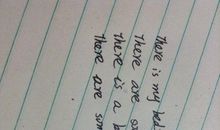 There is my bed
There are
there is a
there are som